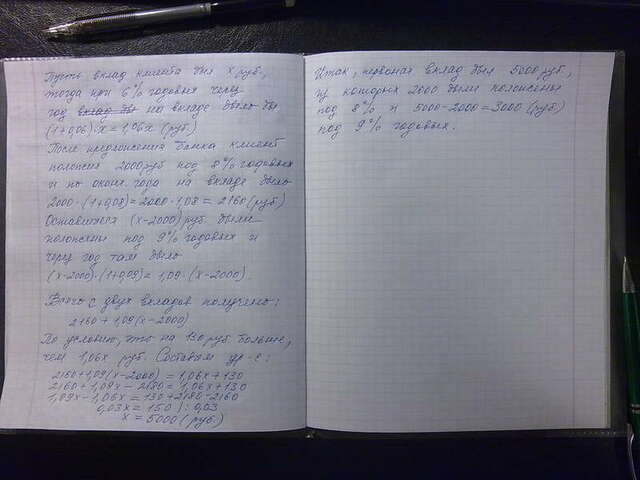 Пусть вклад клиента был x руб.,
тогда при 6% годовых через
год вклад бы на вкладе было бы
(1+0,06)·x = 1,06x (руб.)
После предложения банка клиент
положил 2000 руб под 8% годовых
и по оконч. года на вкладе было
2000·(1+0,08)=2000·1,08 = 2160 (руб.)
Оставшиеся (x-2000) руб. были
положены под 9% годовых и
через год там было
(x-2000)·(1+0,09)= 1,09·(x-2000).
Всего с двух вкладов получено:
2160 + 1,09(x-2000)
По условию, это на 130 руб больше,
чем 1,06x руб. Составим ур-е:
2160+1,09(x-2000) = 1,06x+130
2160+1,09x - 2180 = 1,06x+130
1,09x-1,06x = 130+2180-2160
0,03x = 150 |: 0,03
x = 5000 (руб.)
Итак, первонач. вклад был 5000 руб.,
из которых 2000 были положены
под 8% и 5000-2000=3000 (руб)
под 9% годовых.